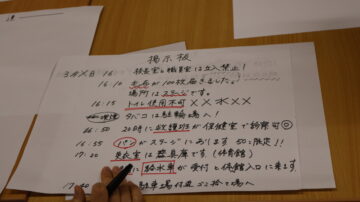 掲示板
3月×日 16:10 校長室と職員室は立入禁止!
16:10 毛布が100枚届きました!
場所はステージです。
16:15 トイレ使用不可 ×××××
タバコは駐輪場へ!
16:50 20時に救護班が保健室で診察可◎
16:55 パンがステージにあります 50ヶ限定!!
17:20 更衣室は器具庫です(体育館)
に給水車が受付と体育館入口に来ます
17:50 駐車場